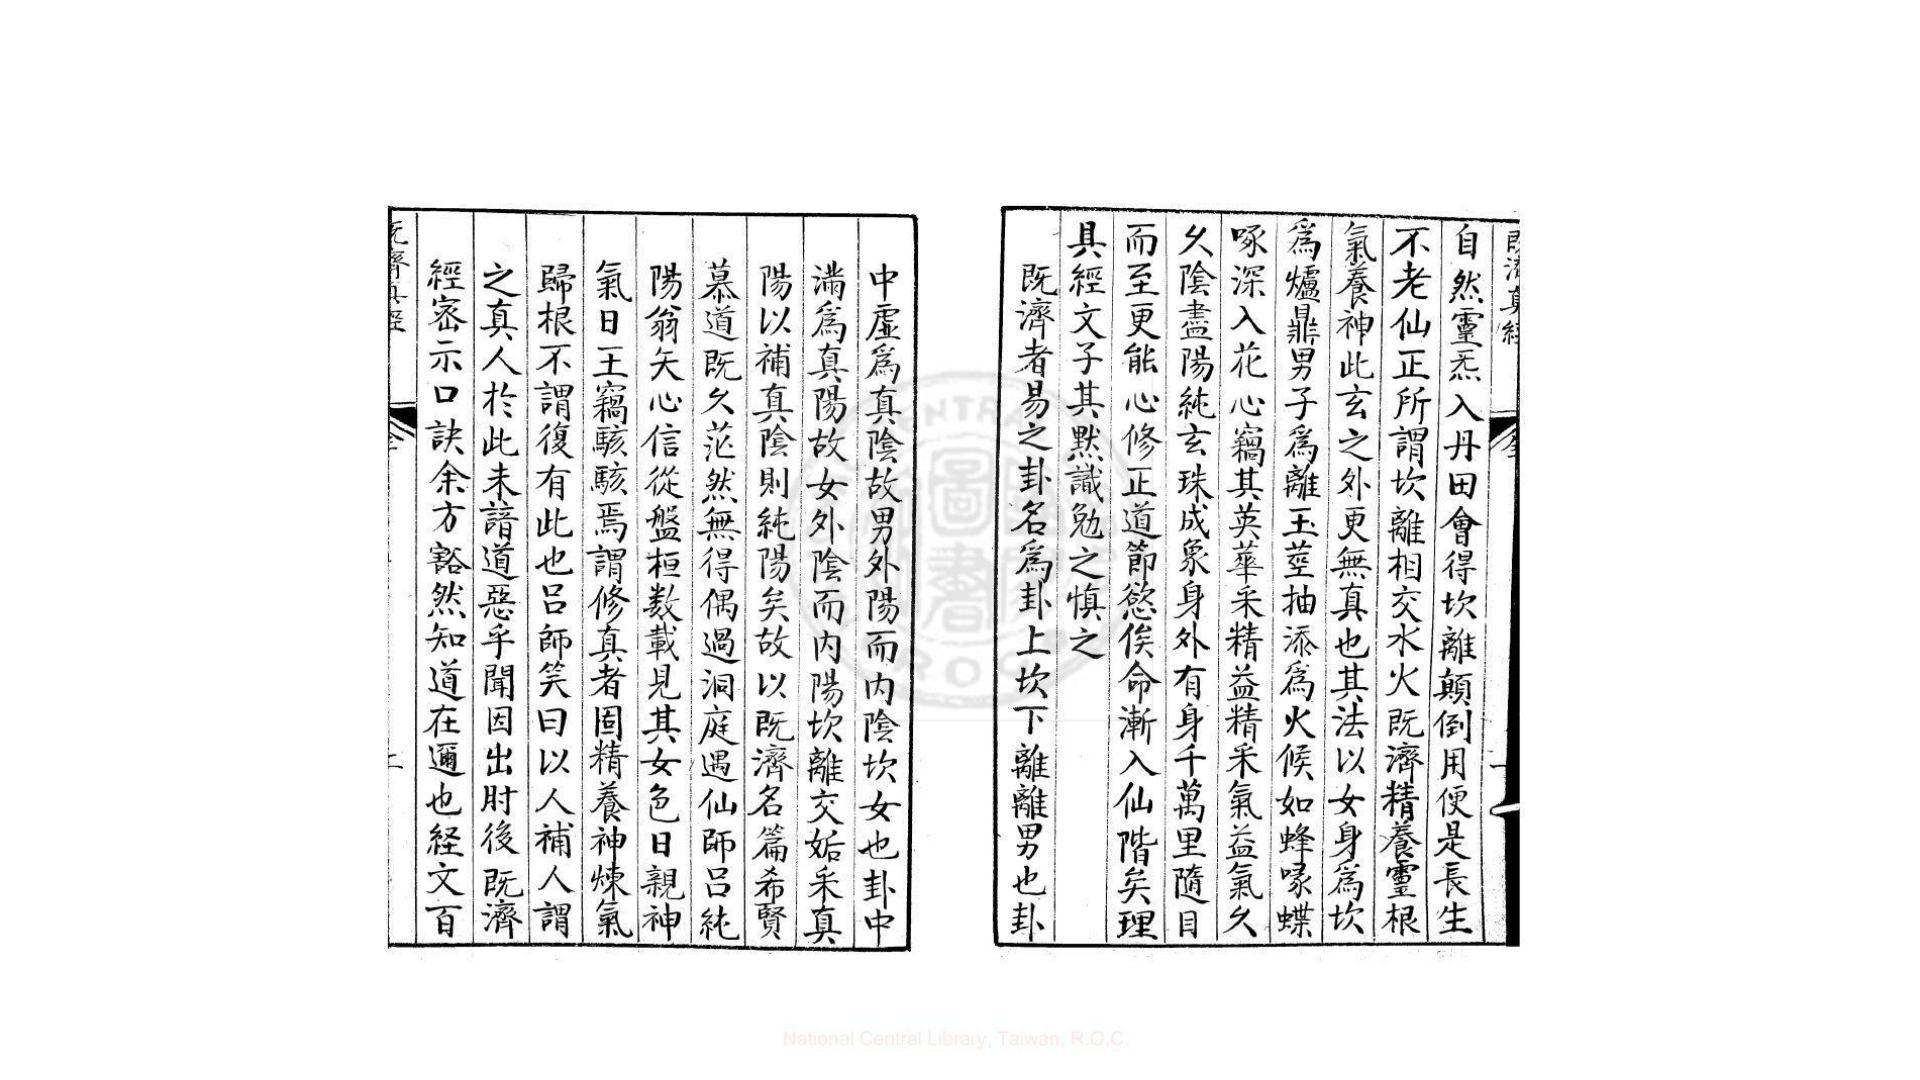 既濟真經
自然靈炁入丹田會得坎離顛倒用便是長生
不老仙正所謂坎離相交水火既濟精養靈根
氣養神此玄之外更無真也其法以女身為坎
為爐鼎男子為離玉莖抽添為火候如蜂喙蝶
啄深入花心竊其英華采精益精采氣益氣久
久陰盡陽純玄珠成象身外有身千萬里隨目
而至更能心修正道節慾俟命漸入仙階矣理
具經文子其默識勉之慎之
既濟者易之卦名為卦上坎下離離男也卦
中虛為真陰故男外陽而内陰坎女也卦中
滿為真陽故女外陰而内陽坎離交姤采真
陽以補真陰則純陽矣故以既濟名篇希賢
慕道既久茫然無得偶過洞庭遇仙師呂純
陽翁矢心信從盤桓数載見其女色日親神
氣日王竊駭駭焉謂修真者固精養神煉氣
歸根不謂復有此也呂師笑曰以人補人謂
之真人於此未諳道惡乎聞因出肘後既濟
經密示口訣余方豁然知道在邇也経文百
既濟真經
CENTRAL
圖
書
R.O.C.
National Central Library, Taiwan, R.O.C.